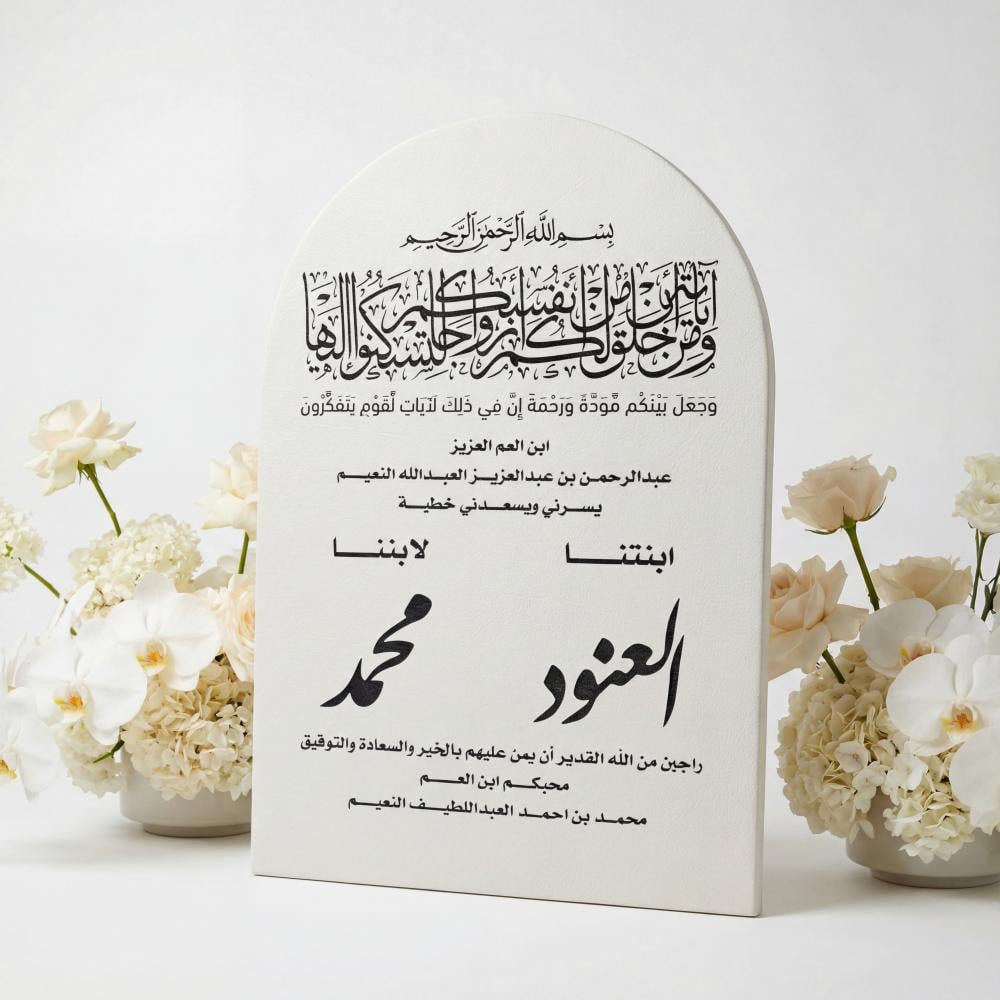 بِسْمِ اللَّهِ الرَّحْمَٰنِ الرَّحِيمِ
وَمِنْ آيَاتِهِ أَنْ خَلَقَ لَكُم مِّنْ أَنفُسِكُمْ أَزْوَاجًا لِّتَسْكُنُوا إِلَيْهَا
وَجَعَلَ بَيْنَكُم مَّوَدَّةً وَرَحْمَةً إِنَّ فِي ذَلِكَ لَآيَاتٍ لِّقَوْمٍ يَتَفَكَّرُونَ
ابن العم العزيز
عبدالرحمن بن عبدالعزيز العبدالله النعيم
يسرني ويسعدني خطبة
ابنتنا لابننا
العنود محمد
راجين من الله القدير أن يمن عليهم بالخير والسعادة والتوفيق
محبكم ابن العم
محمد بن احمد العبداللطيف النعيم